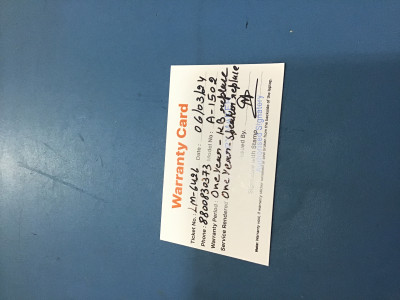 Warranty Card
Ticket No.: LM-6486 Date: 06/03/24
Phone: 8800830373 Model No: A-1502
Warranty Period: One Year - KB replace
Service Rendered: One Year Speaker replace
Signature with Stamp